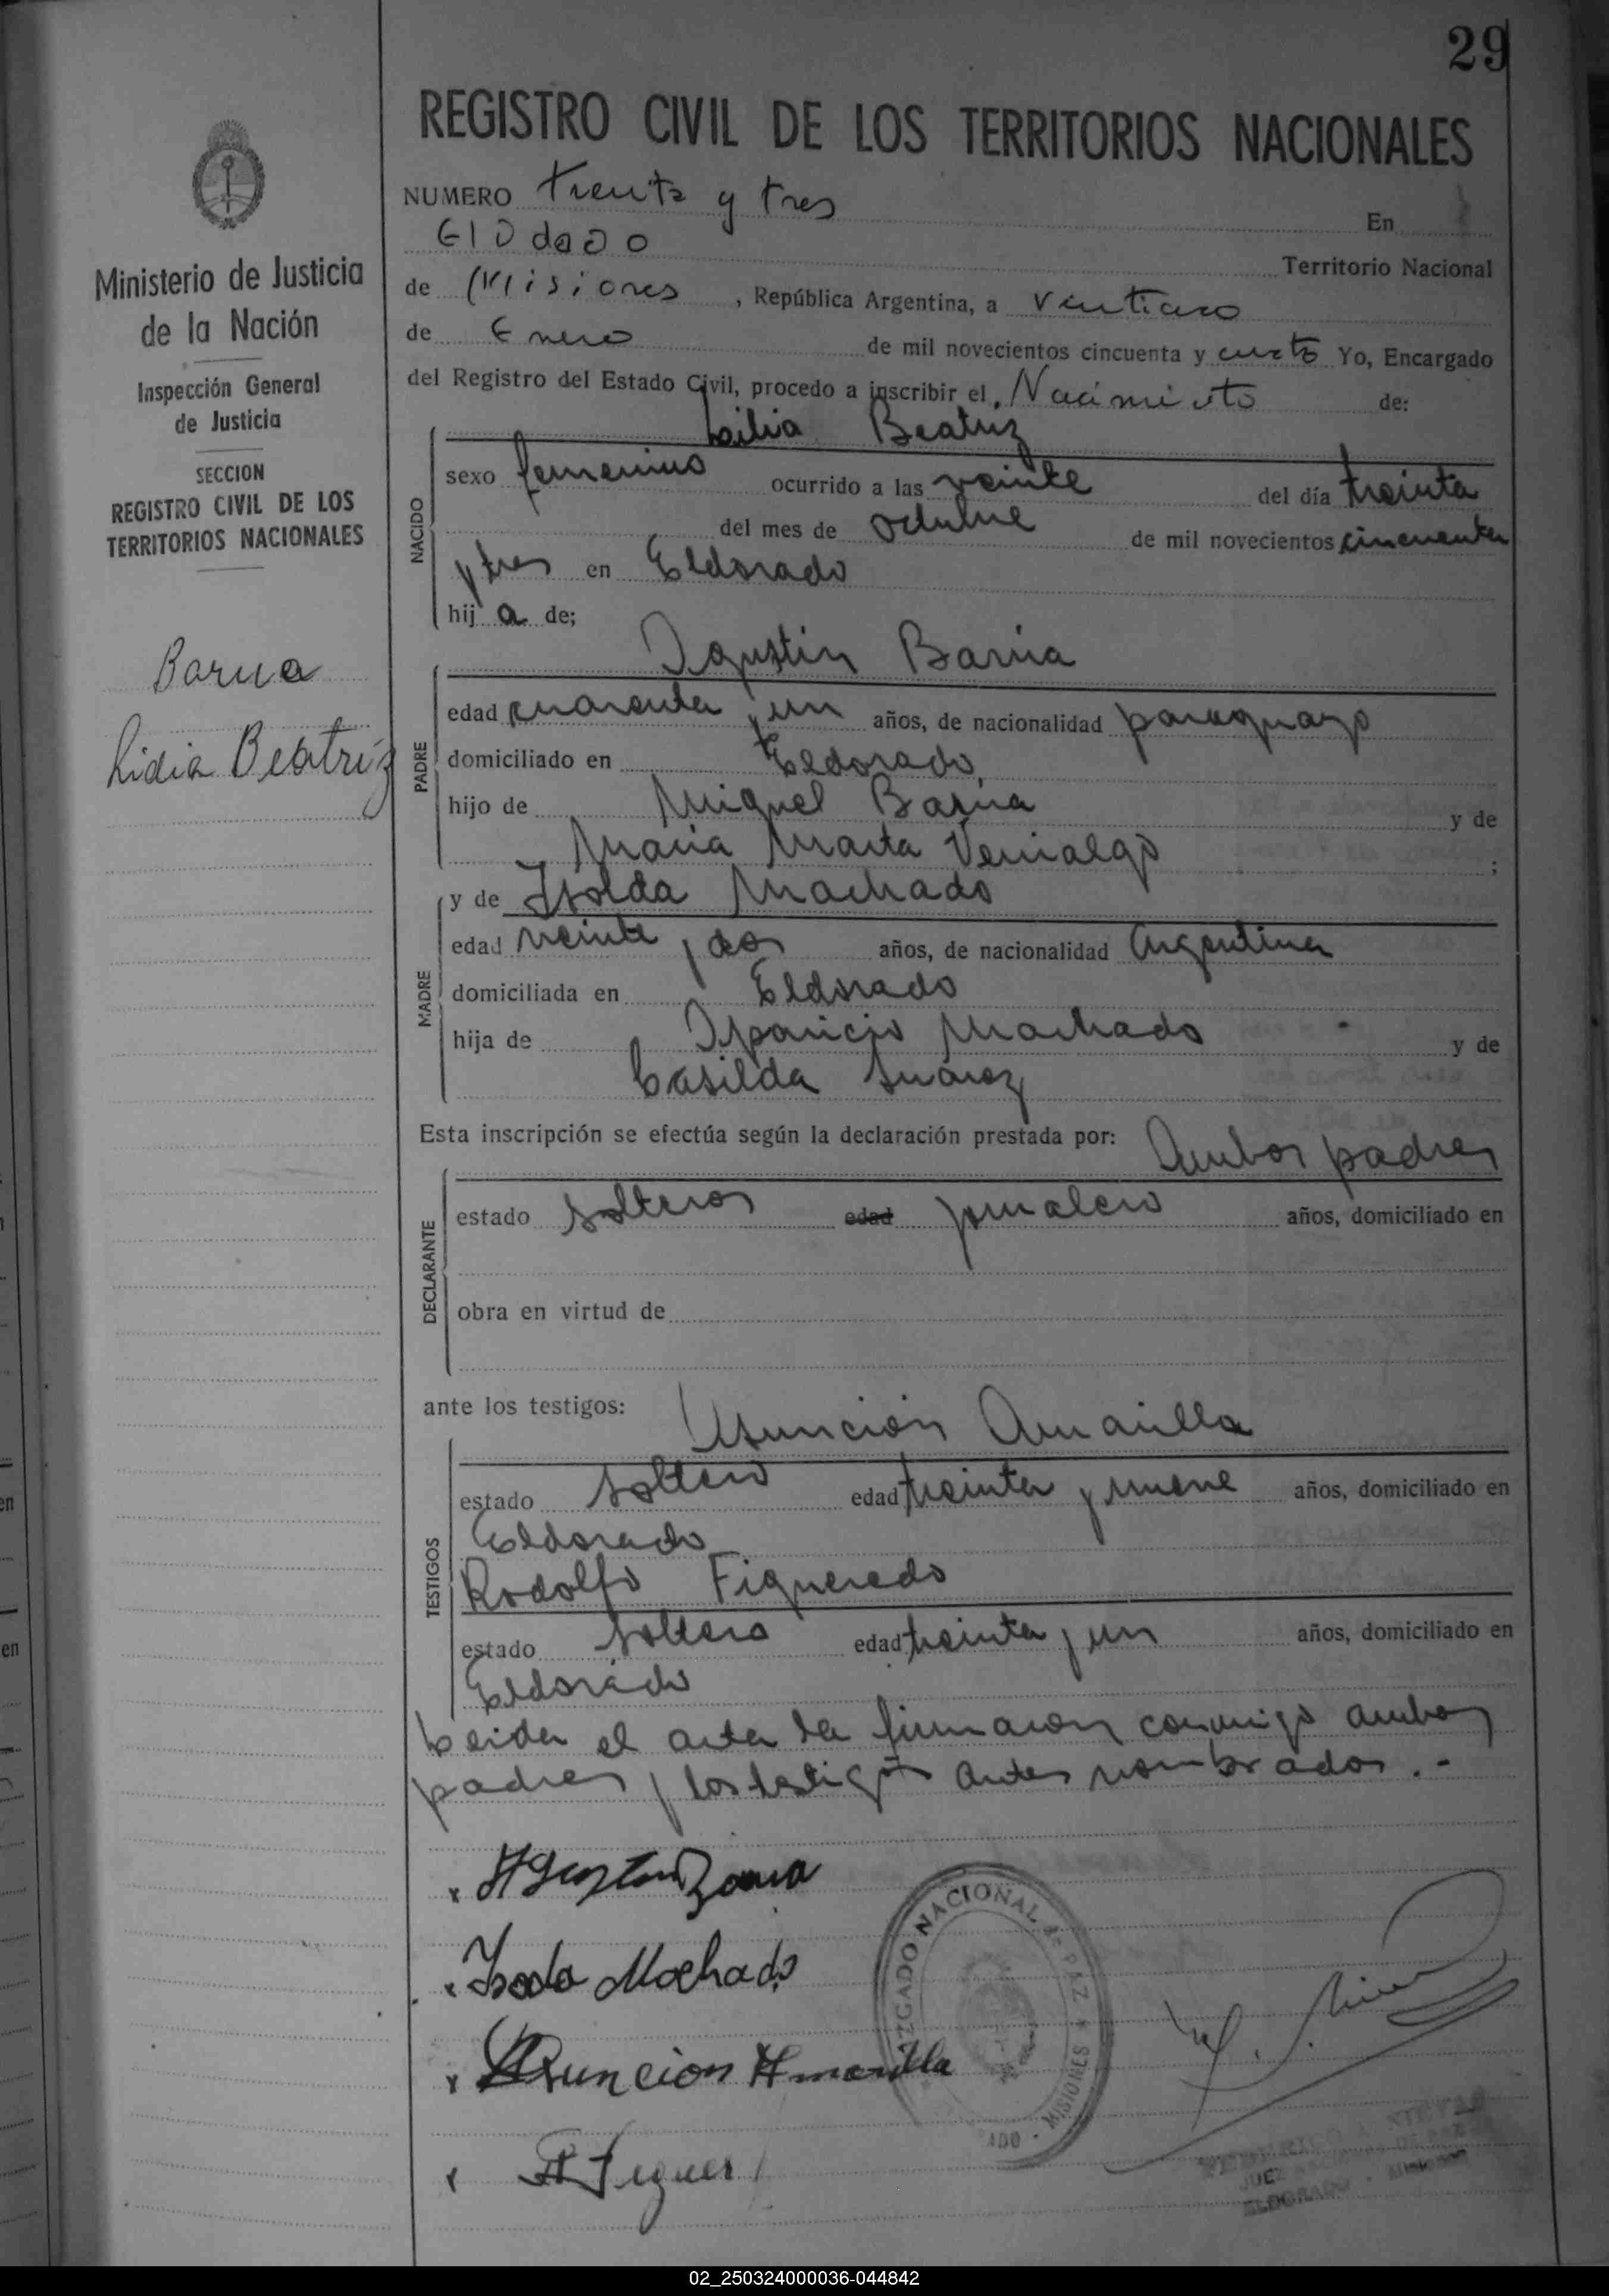 29
REGISTRO CIVIL DE LOS TERRITORIOS NACIONALES
NUMERO Treinta y tres En
ElDdaDo Territorio Nacional
de Misiones , República Argentina, a
de Enero de mil novecientos cincuenta y cuato Yo, Encargado
del Registro del Estado Civil, procedo a inscribir el Nacimiento de:
Ministerio de Justicia
de la Nación
Inspección General
de Justicia
SECCION
REGISTRO CIVIL DE LOS
TERRITORIOS NACIONALES
Barua
Lidia Beatríz
NACIDO
Lilia Beatriz
sexo femenino ocurrido a las veinte del día treinta
del mes de octubre de mil novecientos cincuenta
y tres en Eldorado
hij a de;
PADRE
Agustin Barua
edad cuarenta y un años, de nacionalidad paraguayo
domiciliado en Eldorado,
hijo de Miguel Barúa y de
Maria Marta Venialgo ;
MADRE
y de Isolda Machado
edad veinte y dos años, de nacionalidad Argentina
domiciliada en Eldorado
hija de Aparicio Machado y de
Casilda Suárez
Esta inscripción se efectúa según la declaración prestada por: Ambos padres
DECLARANTE
estado solteros edad jornalero años, domiciliado en
obra en virtud de
ante los testigos: Asunción Amarilla
TESTIGOS
estado soltero edad treinta y nueve años, domiciliado en
Eldorado
Rodolfo Figueredo
estado soltero edad treinta y un años, domiciliado en
Eldorado
Leida el acta la firmaron conmigo ambos
padres y los testigos antes nombrados.-
x Agustin Barua
x Machado
x Asuncion Amarilla
x
JUZGADO NACIONAL de PAZ * MISIONES
JUEZ
ELDORADO - MISIONES
02_250324000036-044842